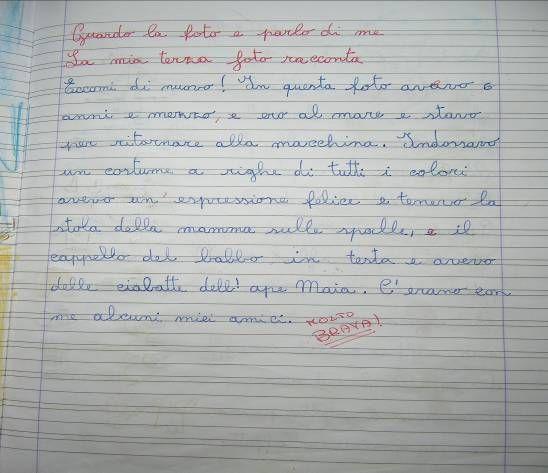 Guardo la foto e parlo di me
La mia terza foto racconta
Eccomi di nuovo! In questa foto avevo 6
anni e mezzo, e ero al mare e stavo
per ritornare alla macchina. Indossavo
un costume a righe di tutti i colori
avevo un' espressione felice e tenevo la
stola della mamma sulle spalle, e il
cappello del babbo in testa e avevo
delle ciabatte dell' ape Maia. C'erano con
me alcuni miei amici.
MOLTO
BRAVA!